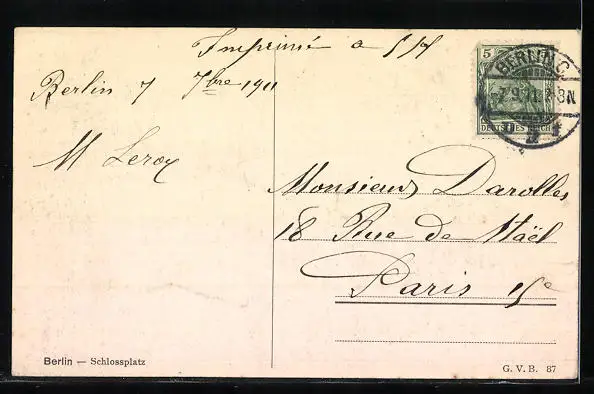 Imprimé a 5 pf
Berlin 7 7bre 1911
M Leroy
5
DEUTSCHES REICH
BERLIN C.
7.9.11. 7-8N
Monsieur Darolles
18 Rue de Staël
Paris 15e
Berlin — Schlossplatz
G. V. B. 87